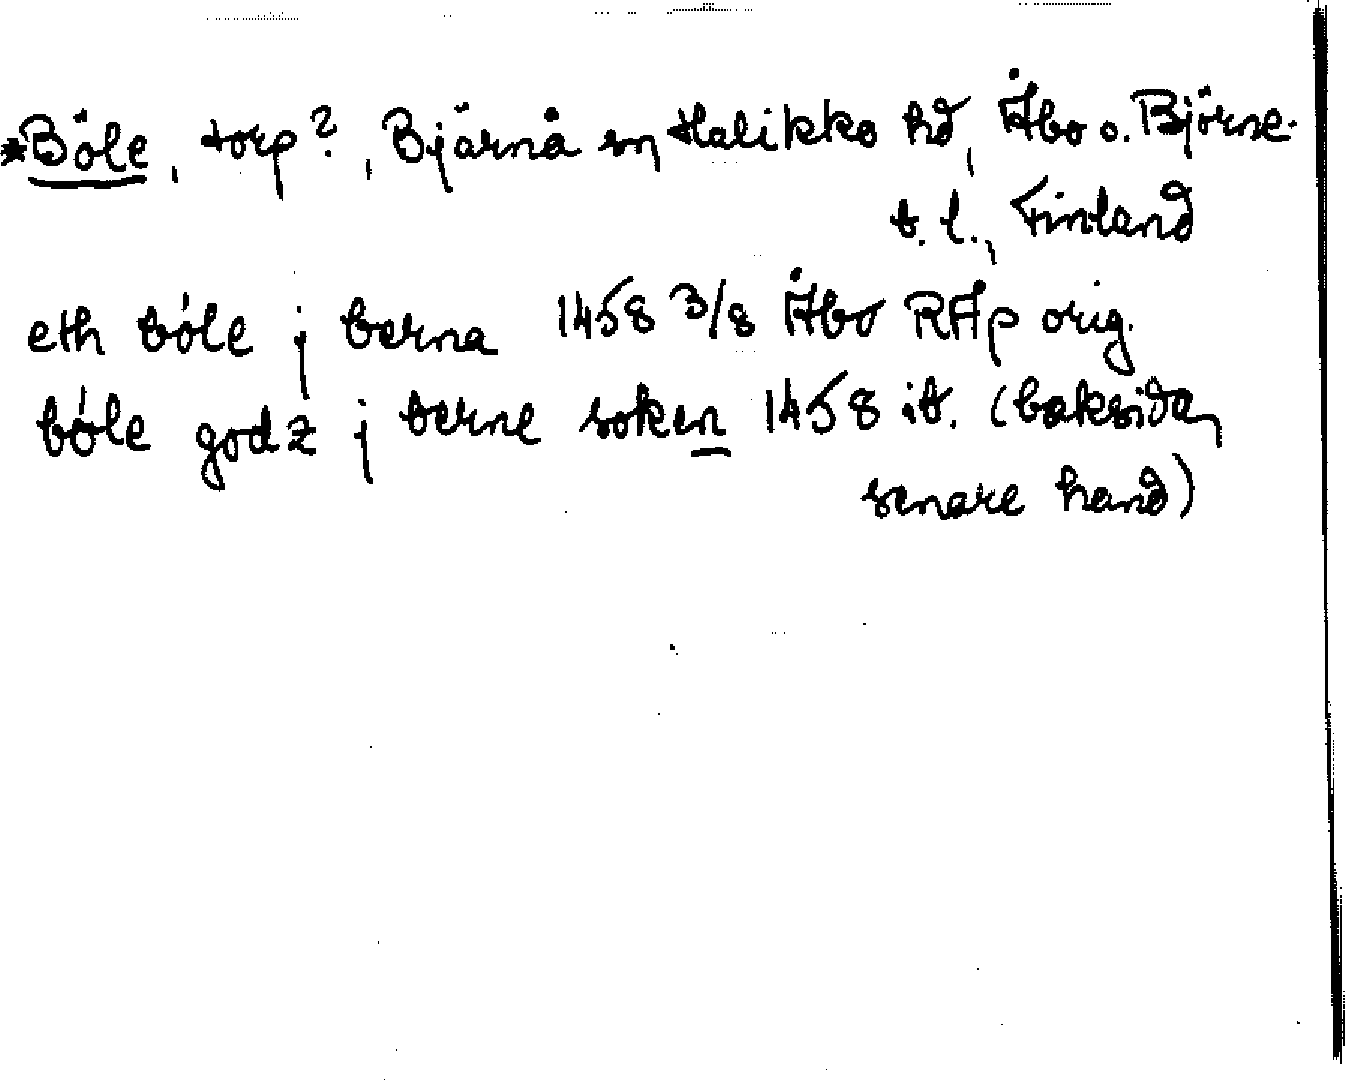 *Böle, torp?, Bjärnå sn, Halikko hd, Åbo o. Björne-
b. l., Finland
eth bóle j berna 1458 3/8 Åbo RAp orig.
bóle godz j berne soken 1458 ib. (baksidan,
senare hand)